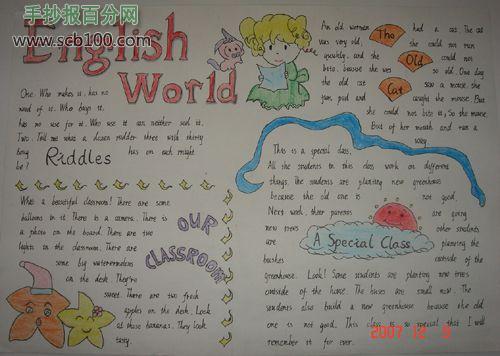 手抄报百分网
www.scb100.com
English
World
One. Who makes it, has no
need of it. Who buys it,
has no use for it. Who use it can neither see it.
Two. Tell me what a dozen rudder trees with thirty
boughs has on each might
be?
Riddles
What a beautiful classroom! There are some
balloons in it. There is a camera. There is
a photo on the board. There are two
lights in the classroom. There are
some big watermelons
on the desk. They're
sweet. There are two fresh
apples on the desk. Look
at those bananas. They look
tasty.
OUR
CLASSROOM
The
Old
Cat
An old woman had a cat. The cat
was very old, she could not run
quickly, and she could not
bite, because she was so old. One day
the old cat saw a mouse. She
jump and caught the mouse. But
she could not bite it, So the mouse.
Out of her mouth and ran a
way.
This is a special class.
All the students in this class work on different
things. The students are planting new greenhouse
because the old one is not good.
Next week, their parents are going
new trees other students
are planting the
bushes outside of the
greenhouse. Look! Some students are planting new trees
outside of the house. The buses are small now. The
students also build a new greenhouse because the old
one is not good. This class is so special that I will
remember it for ever.
A Special Class
2007 12 3